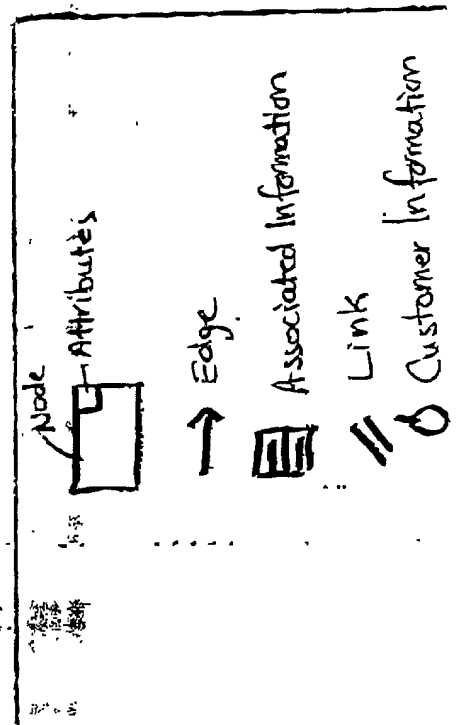 Node
Attributes
Edge
Associated Information
Link
Customer Information